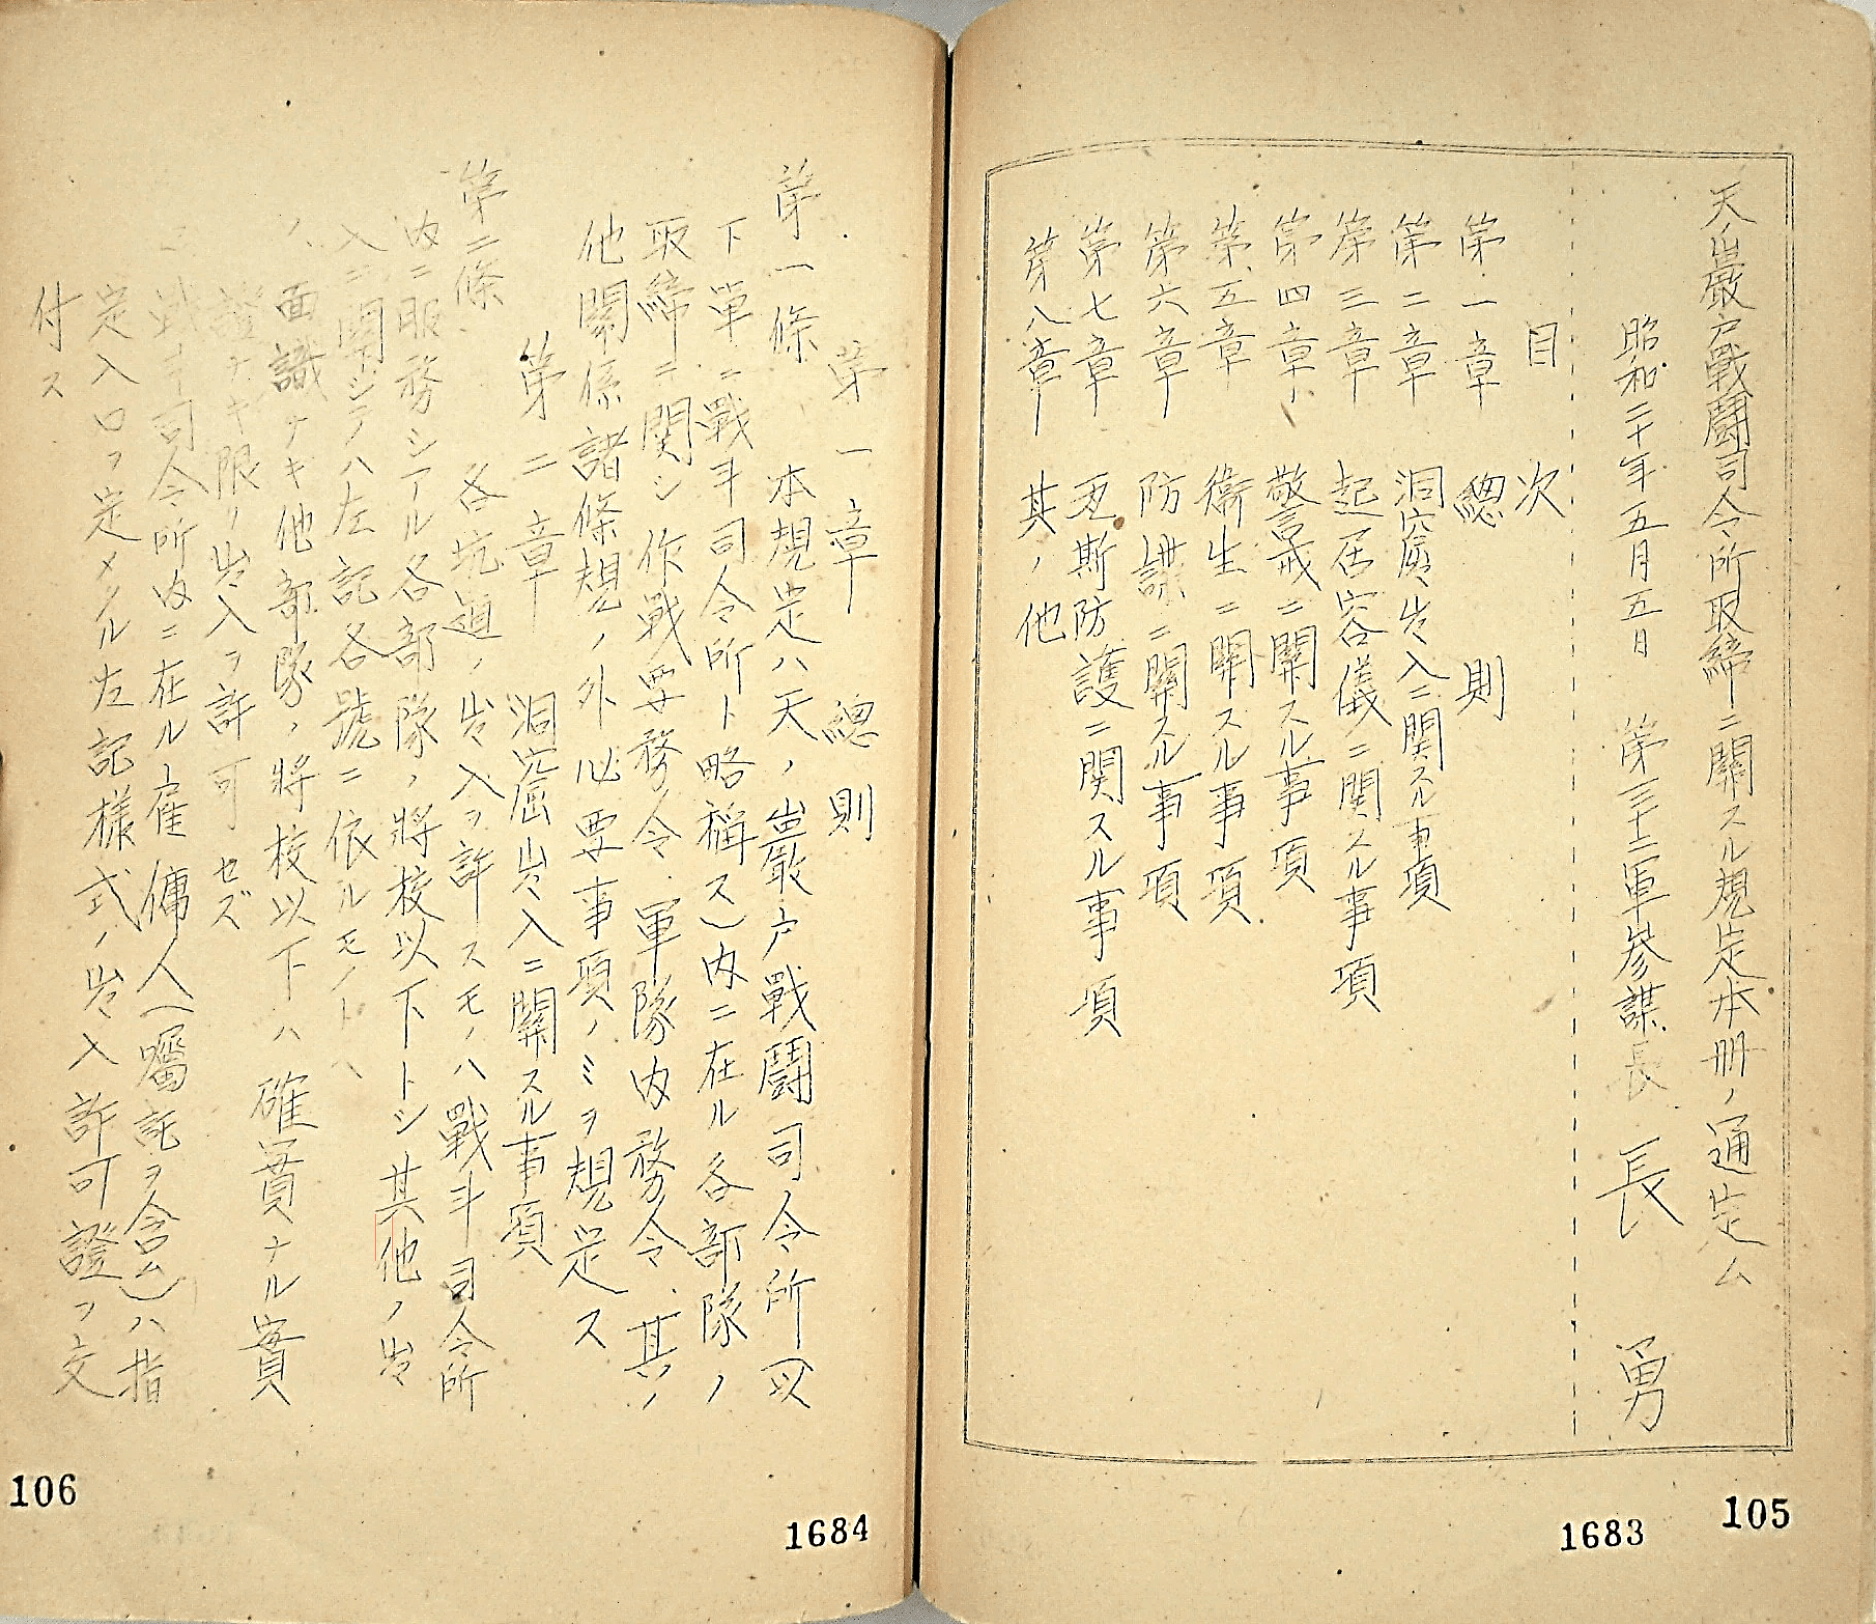 天ノ巖戸戰鬪司令所取締ニ關スル規定本冊ノ通定ム
昭和二十年五月五日　第三十二軍參謀長　長　勇
目　次
第一章　總　則
第二章　洞窟出入ニ関スル事項
第三章　起居容儀ニ関スル事項
第四章　警戒ニ關スル事項
第五章　衛生ニ関スル事項
第六章　防諜ニ関スル事項
第七章　瓦斯防護ニ関スル事項
第八章　其ノ他
105
1683
第一章　總則
第一條　本規定ハ天ノ巖戸戰鬪司令所（以
下單ニ戰斗司令所ト略稱ス）内ニ在ル各部隊ノ
取締ニ関シ作戰要務令、軍隊内務令、其ノ
他關係諸條規ノ外必要事項ノミヲ規定ス
第二章　洞窟出入ニ關スル事項
第二條　各坑道ノ出入ヲ許スモノハ戰斗司令所
内ニ服務シアル各部隊ノ將校以下トシ其他ノ出
入ニ関シテハ左記各號ニ依ルモノトハ
面識ナキ他部隊ノ將校以下ハ確實ナル實
證ナキ限リ出入ヲ許可セズ
戰斗司令所内ニ在ル雇傭人（囑託ヲ含ム）ハ指
定入口ヲ定メタル左記樣式ノ出入許可證ヲ交
付ス
106
1684